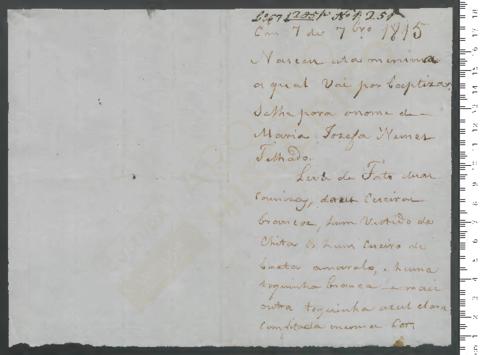 Em 7 de 7bro 1815
Nasceu esta menina
a qual Vai por baptizar,
Selhe pora onome de
Maria Jozefa Nunes
Telhado.
Leva de Fato duas
Camizas, dois Cueiros
brancos, hum Vestido de
Chita & hum Cueiro de
baeta amarelo, e huma
toquinha branca e mais
outra toquinha azul clara
Cor.